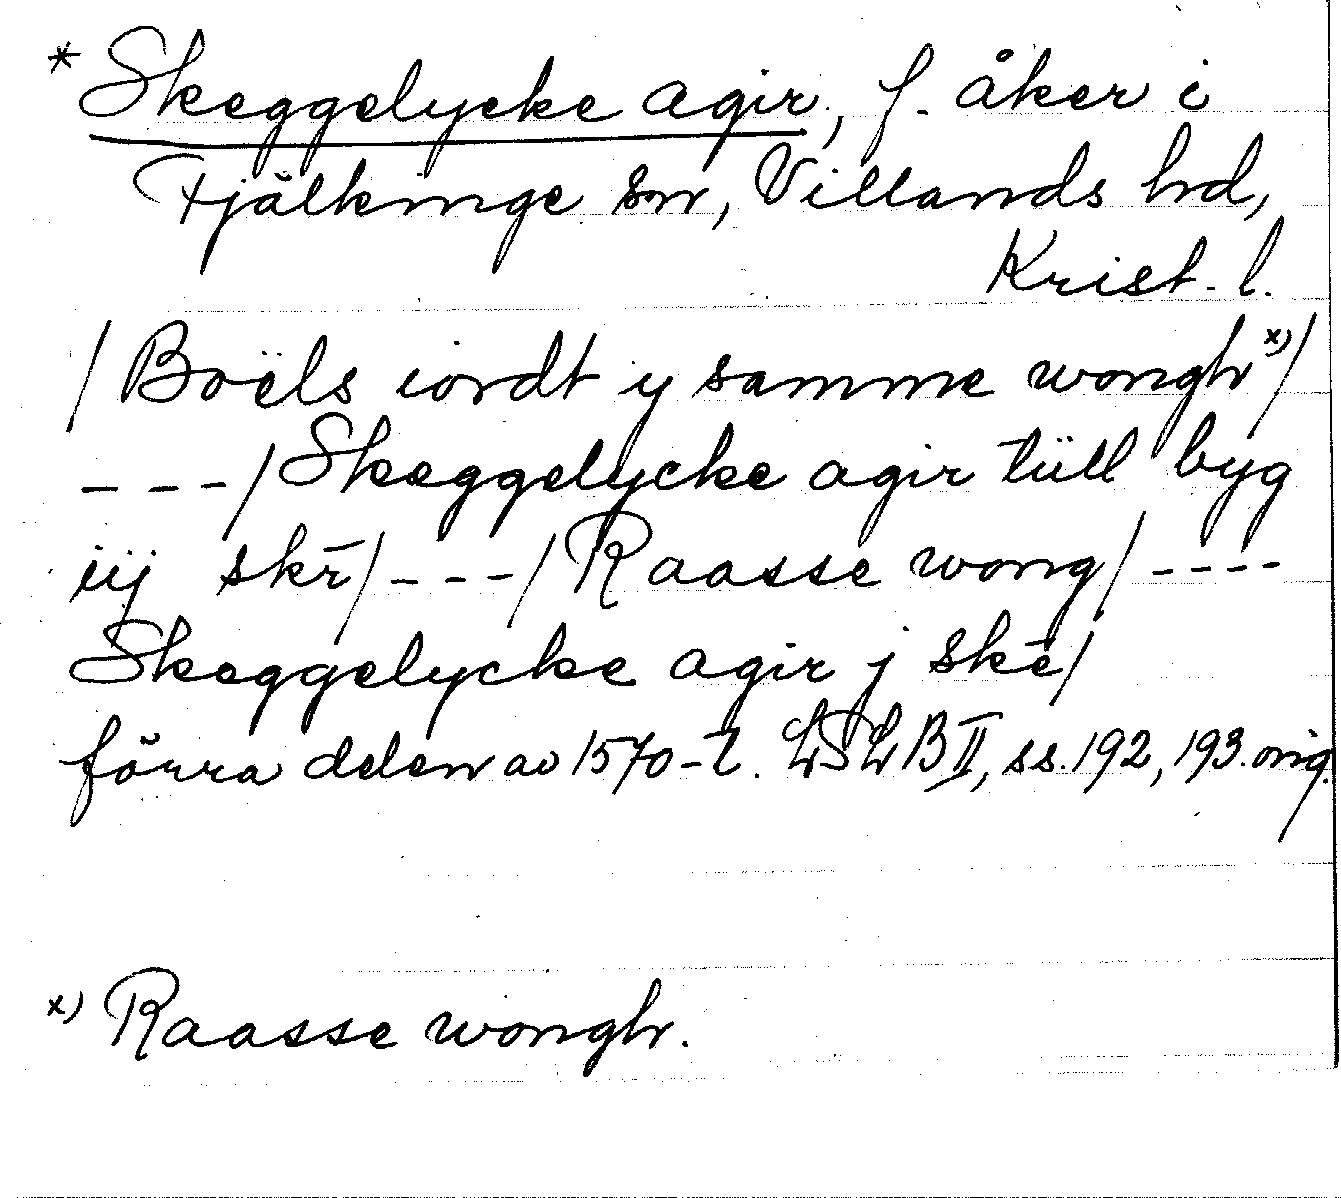 * Skeggelycke agir, f. åker i
Fjälkinge sn, Villands hd,
Krist. l.
/Boëls iordt y samme wongh x)/
---/Skeggelycke agir tüll byg
iij skr̄/---/Raasse wong/----
Skeggelycke agir j skē/
förra delen av 1570-t. LSLB II, ss. 192, 193. orig.
x) Raasse wongh.